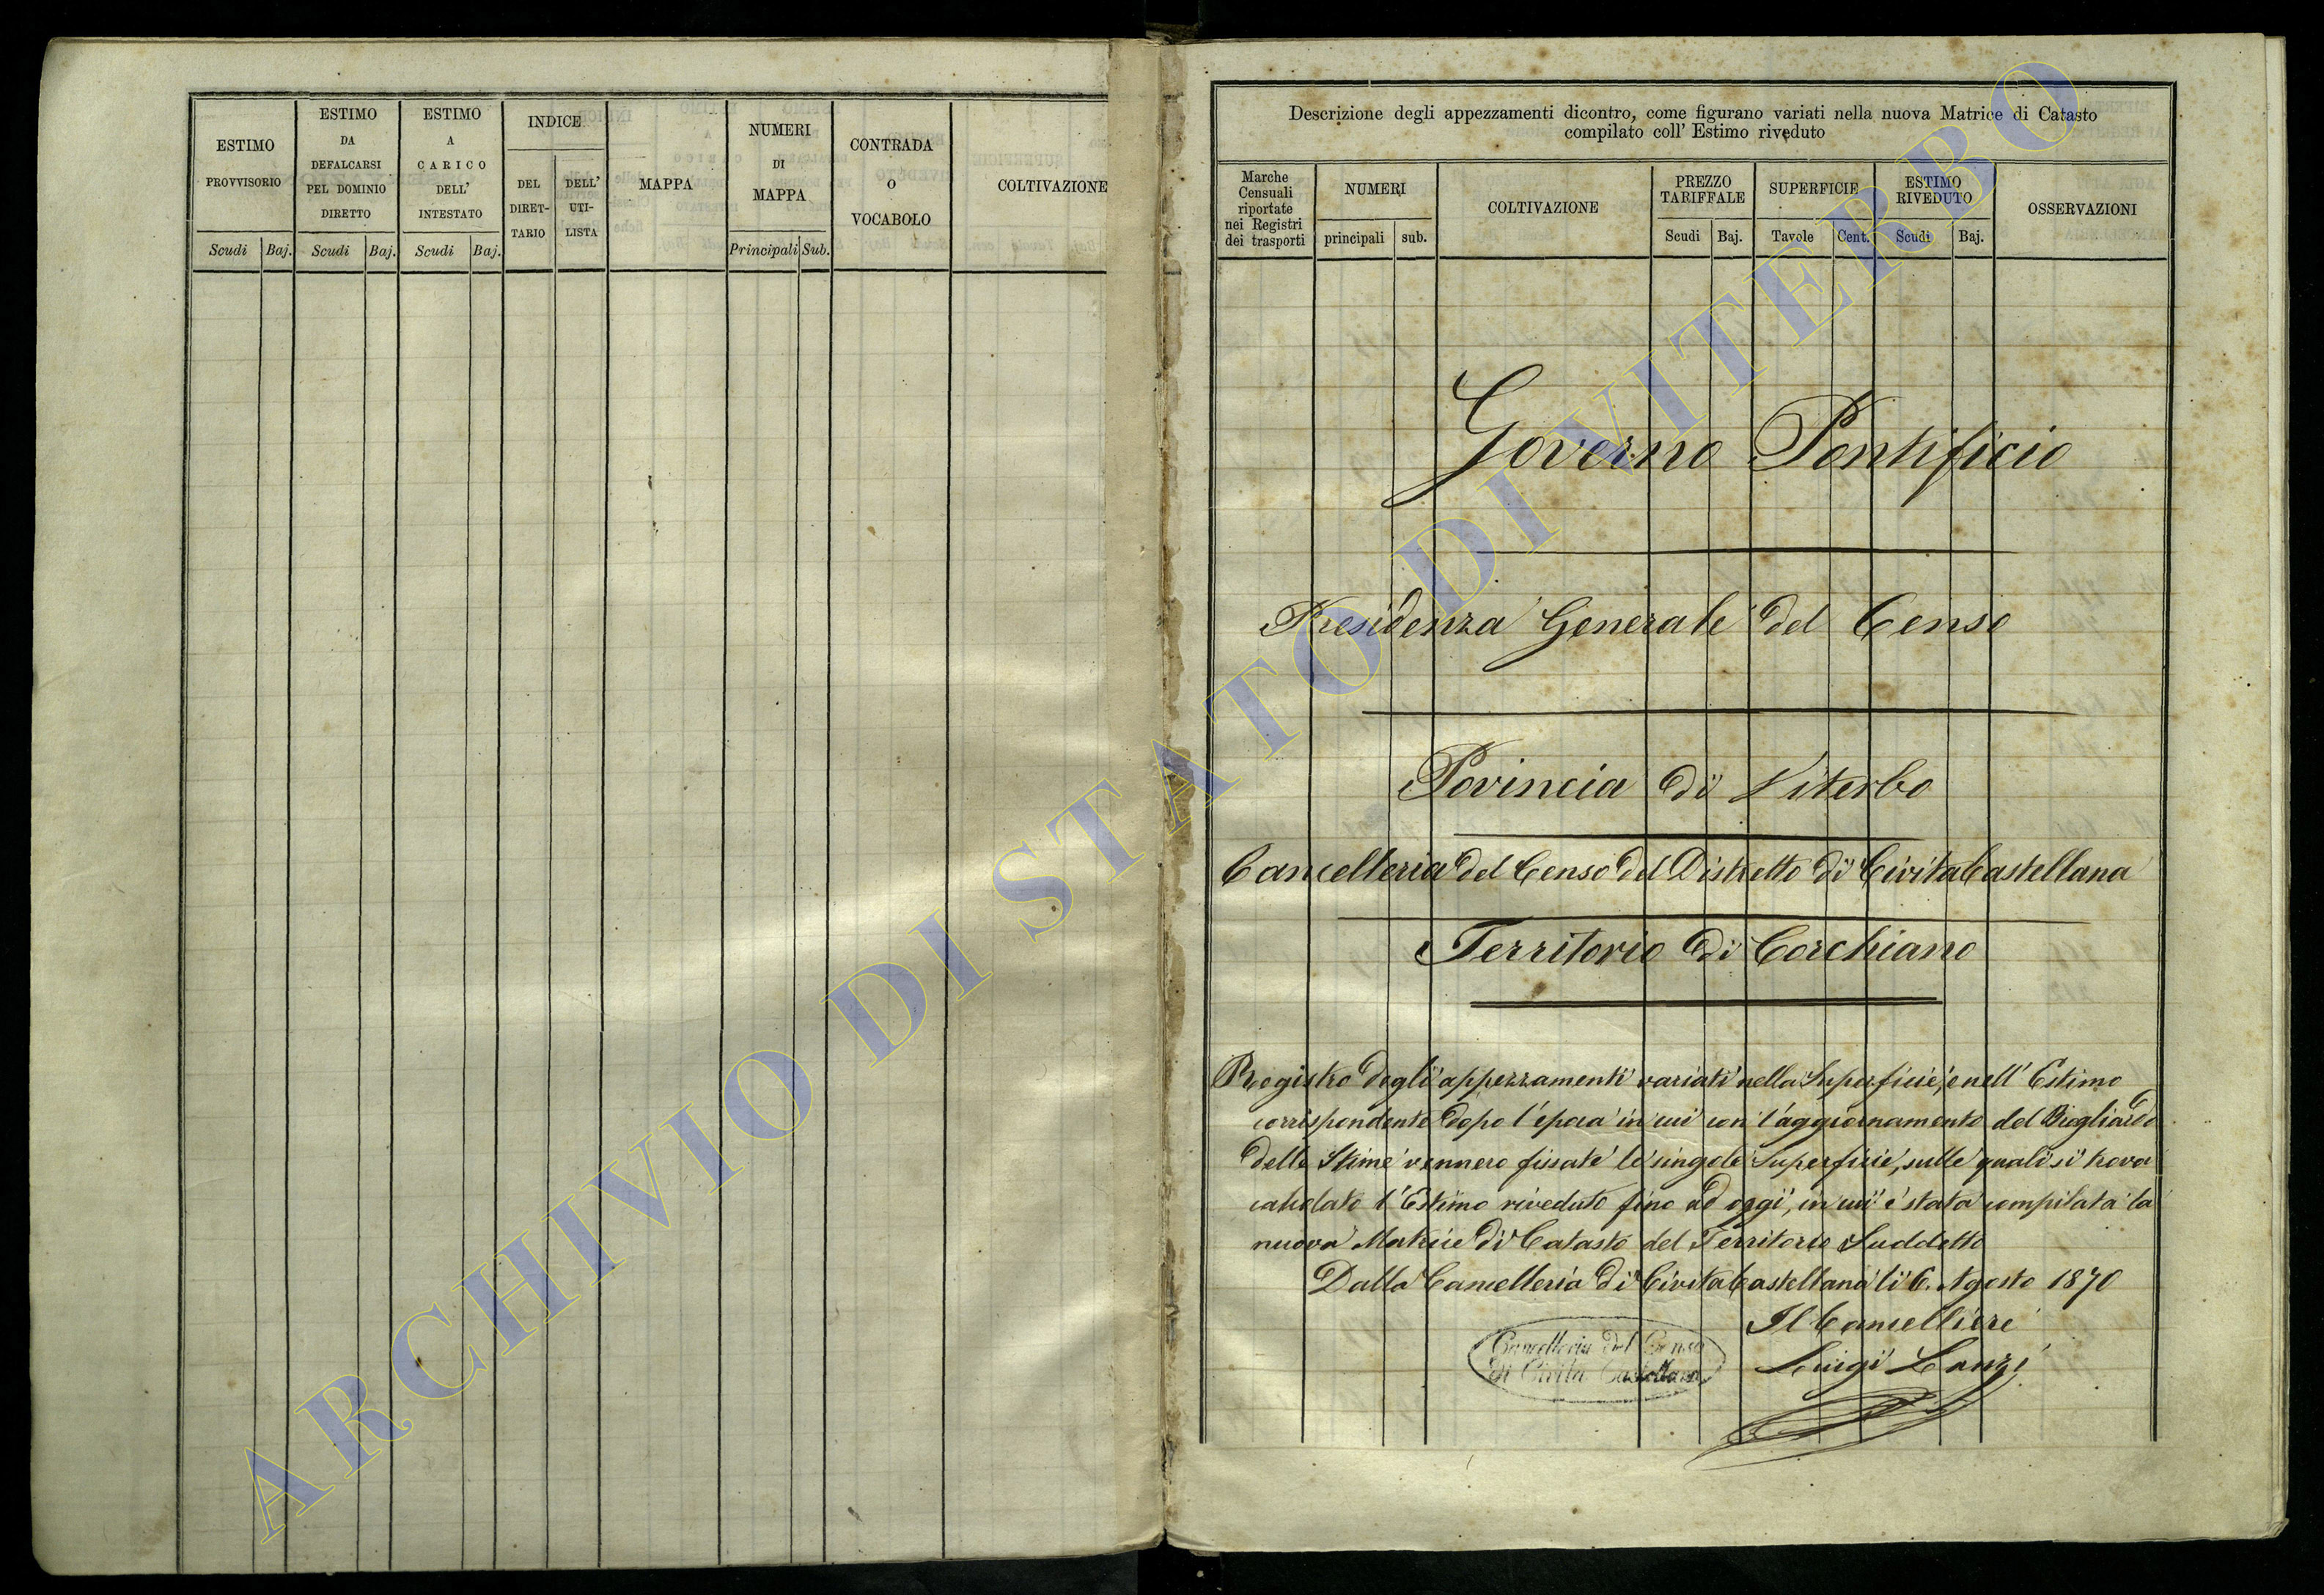 ESTIMO
PROVVISORIO
Scudi Baj.
ESTIMO
DA
DEFALCARSI
PEL DOMINIO
DIRETTO
Scudi Baj.
ESTIMO
A
CARICO
DELL'
INTESTATO
Scudi Baj.
INDICE
DEL
DIRET-
TARIO
DELL'
UTI-
LISTA
MAPPA
NUMERI
DI
MAPPA
Principali Sub.
CONTRADA
O
VOCABOLO
COLTIVAZIONE
Descrizione degli appezzamenti dicontro, come figurano variati nella nuova Matrice di Catasto
compilato coll' Estimo riveduto
Marche
Censuali
riportate
nei Registri
dei trasporti
NUMERI
principali sub.
COLTIVAZIONE
PREZZO
TARIFFALE
Scudi Baj.
SUPERFICIE
Tavole Cent.
ESTIMO
RIVEDUTO
Scudi Baj.
OSSERVAZIONI
Governo Pontificio
Presidenza Generale del Censo
Povincia di Viterbo
Cancelleria del Censo del Distretto di Civita Castellana
Territorio di Corchiano
Registro degli appezzamenti variati nella Superficie, e nell' Estimo
corrispondente dopo l'epoca in cui con l'aggiornamento del Brogliardo
delle Stime vennero fissate le singole Superficie, sulle quali si trova
calcolato l'Estimo riveduto fino ad oggi, in cui è stata compilata la
nuova Matrice di Catasto del Territorio Suddetto
Dalla Cancelleria di Civita Castellana li 6. Agosto 1870
Il Cancelliere
Luigi Lanzi
Cancelleria del Censo
di Civita Castellana
ARCHIVIO DI STATO DI VITERBO